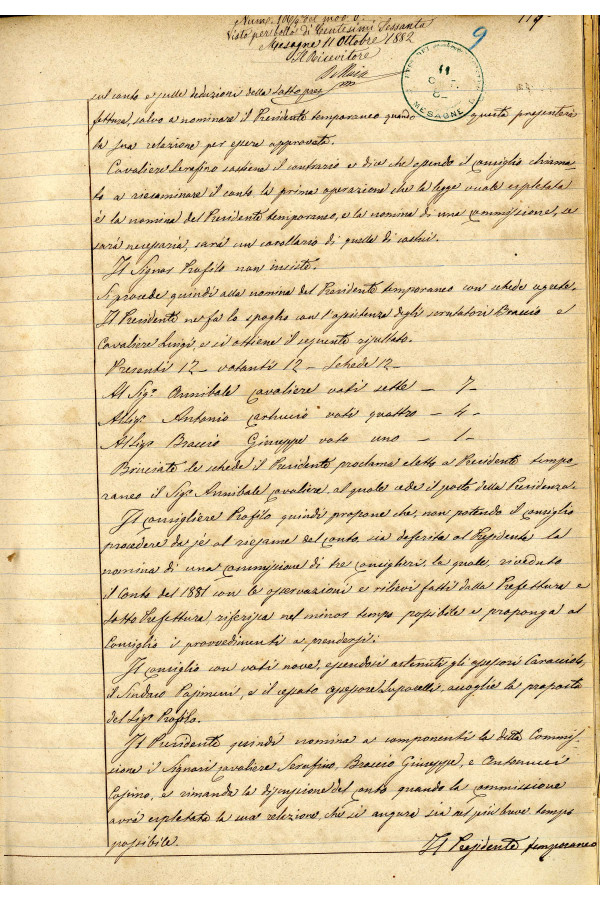 119
Visto per bollo di Centesimi Sessanta
Mesagne 11 Ottobre 1882
Il Ricevitore
9
11
MESAGNE
sul conto e sulle deduzioni della Sottopre
fettura, salvo a nominare il Presidente temporaneo quando questa presenterà
la sua relazione per essere approvata.
Cavaliere Serafino sostiene il contrario e dice che essendo il Consiglio chiama-
to a riesaminare il conto la prima operazione che la legge vuole espletata
è la nomina del Presidente temporaneo, e la nomina di una commissione, se
sarà necessaria, sarà un corollario di quella di costui.
Il Signor Profilo non insiste.
Si procede quindi alla nomina del Presidente temporaneo con schede segrete.
Il Presidente ne fa lo spoglio con l'assistenza degli scrutatori Braccio e
Cavaliere Luigi, e si ottiene il seguente risultato.
Presenti 12 – votanti 12 – schede 12 –
Al Sigr Annibale Cavaliere voti sette – 7 –
Al Sigr Antonio voti quattro – 4 –
Al Sigr Braccio Giuseppe voto uno – 1 –
Bruciate le schede il Presidente proclama eletto a Presidente tempo-
raneo il Sigr Annibale Cavaliere, al quale cede il posto della Presidenza.
Il Consigliere Profilo quindi propone che, non potendo il Consiglio
procedere da se al riesame del Conto, sia deferita al Presidente la
nomina di una commissione di tre Consiglieri, la quale, riveduto
il Conto del 1881 con le osservazioni e rilievi fatti dalla Prefettura e
Sotto Prefettura, riferisca nel minor tempo possibile e proponga al
Consiglio i provvedimenti a prendersi.
Il Consiglio con voti nove, essendosi astenuti gli assessori
il Sindaco e il cessato assessore accoglie la proposta
del Sigr Profilo.
Il Presidente quindi nomina a componenti la detta Commis-
sione i Signori Cavaliere Serafino, Braccio Giuseppe, e Antonucci
Cosimo, e rimanda la discussione del Conto quando la commissione
avrà espletata la sua relazione, che si augura sia nel più breve tempo
possibile.
Il Presidente temporaneo